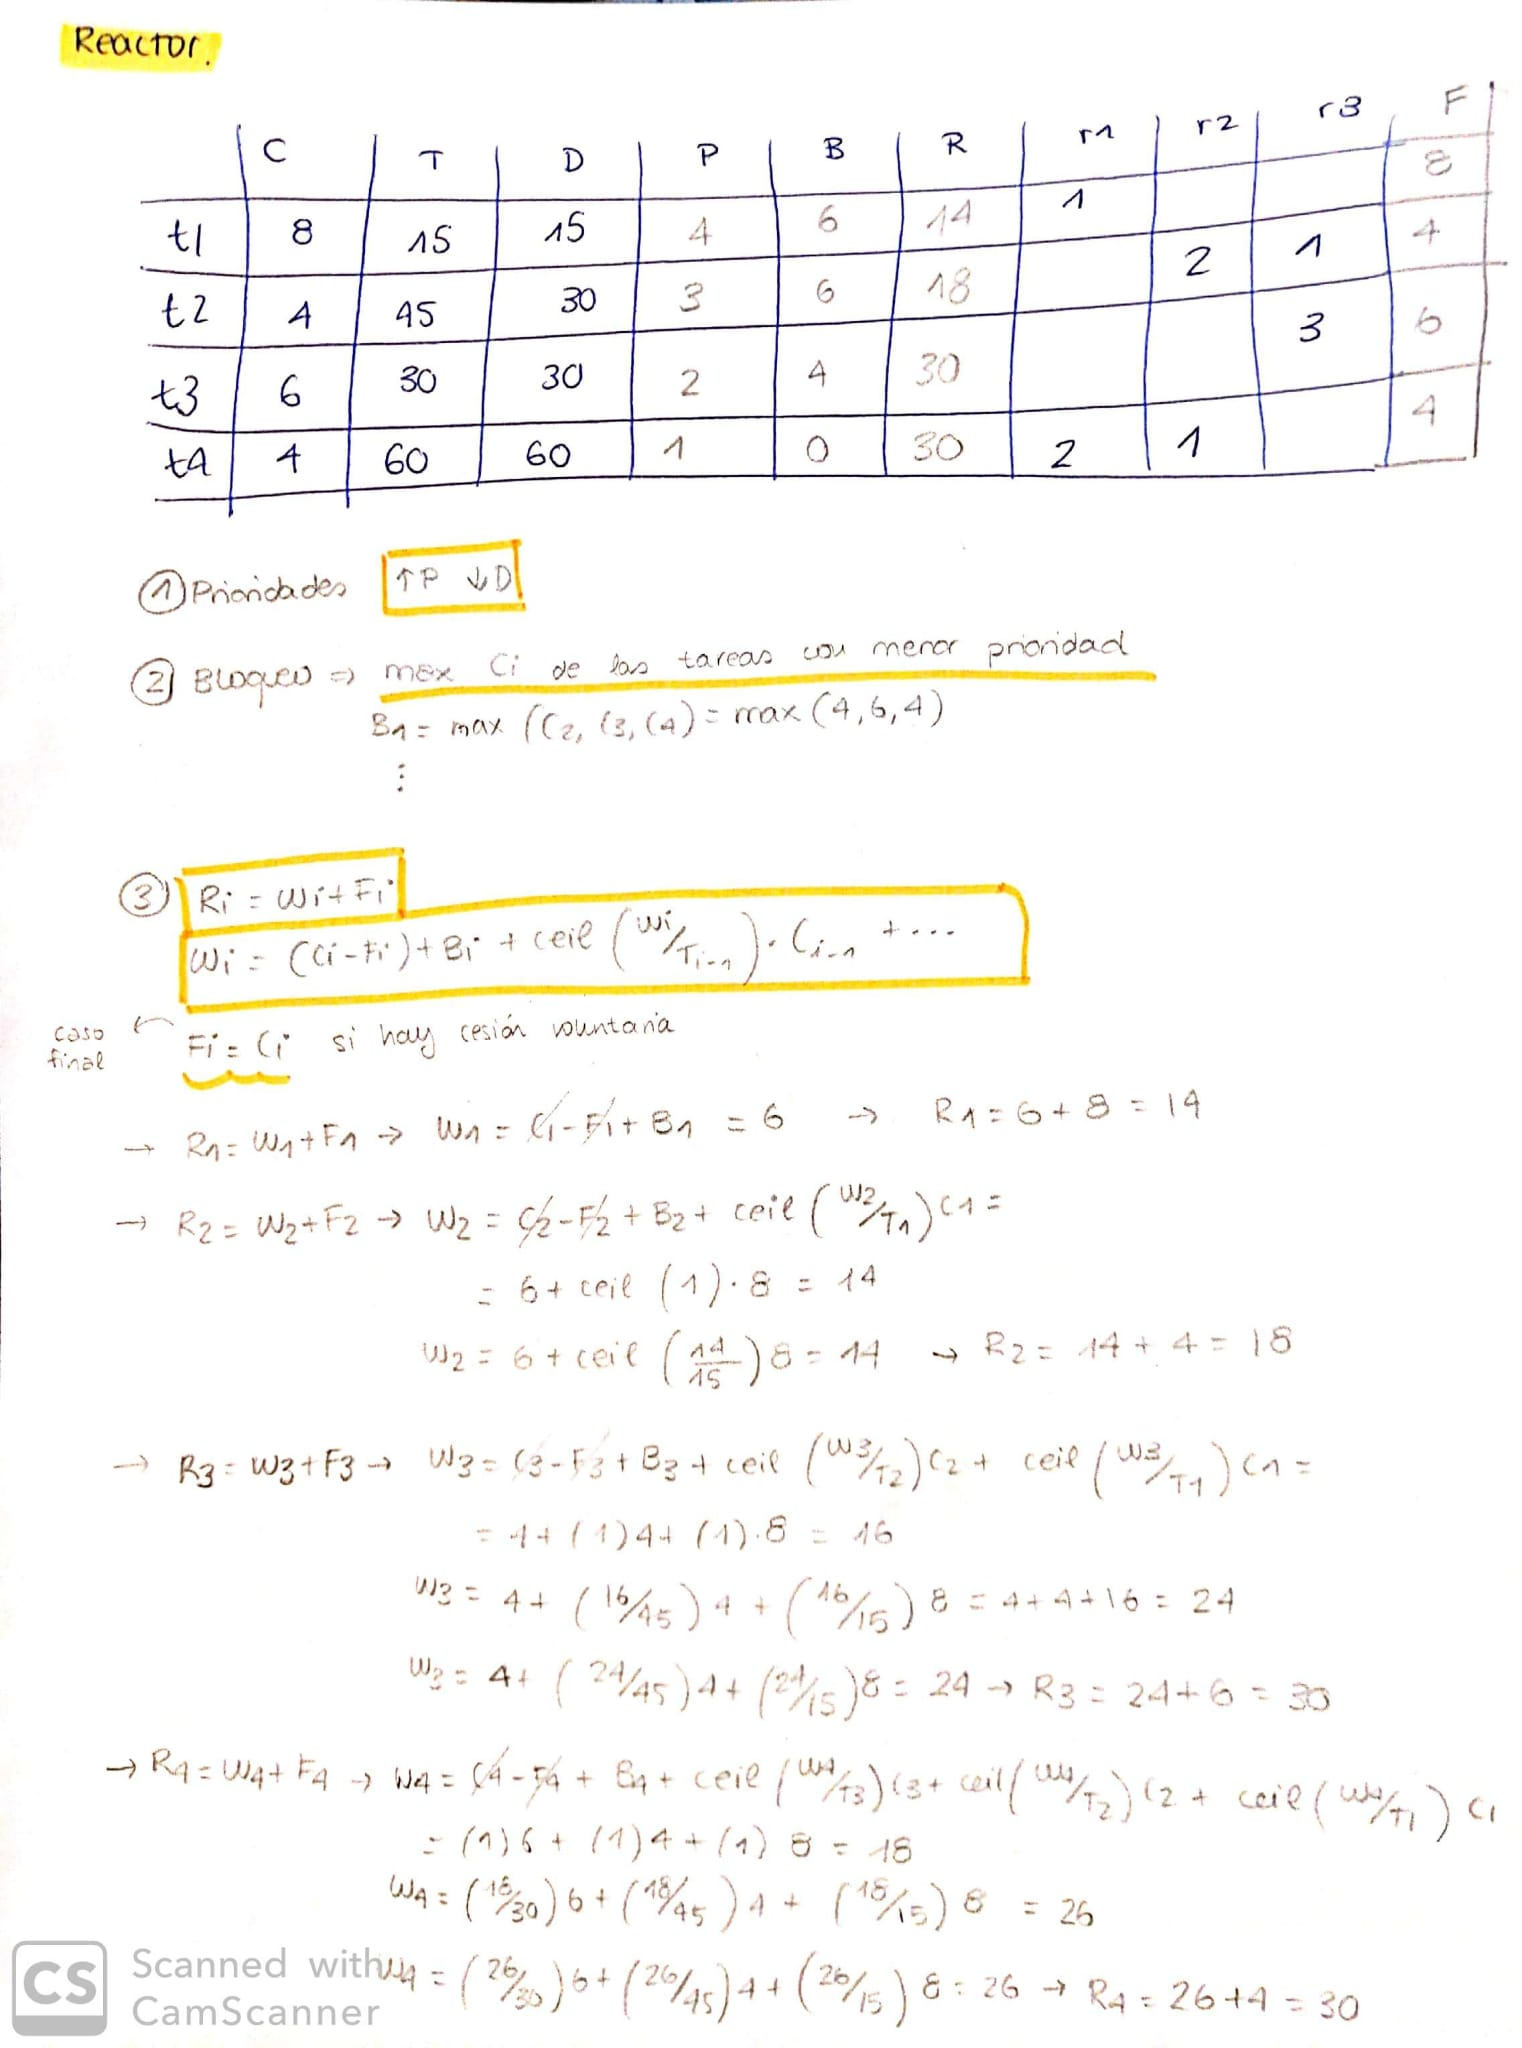 Reactor.
C T D P B R r1 r2 r3 F
t1 8 15 15 4 6 14 1 8
t2 4 45 30 3 6 18 2 1 4
t3 6 30 30 2 4 30 3 6
t4 4 60 60 1 0 30 2 1 4
① Prioridades ↑P ↓D
② Bloqueo ⇒ max Ci de las tareas con menor prioridad
B1 = max (C2, C3, C4) = max (4,6,4)
⋮
③ Ri = Wi + Fi
Wi = (Ci-Fi) + Bi + ceil (Wi/Ti-1) · Ci-1 + ...
caso final ← Fi = Ci si hay cesión voluntaria
→ R1 = W1 + F1 → W1 = C1 - F1 + B1 = 6 → R1 = 6 + 8 = 14
→ R2 = W2 + F2 → W2 = C2 - F2 + B2 + ceil (W2/T1) C1 =
= 6 + ceil (1) · 8 = 14
W2 = 6 + ceil (14/15) 8 = 14 → R2 = 14 + 4 = 18
→ R3 = W3 + F3 → W3 = C3 - F3 + B3 + ceil (W3/T2) C2 + ceil (W3/T1) C1 =
= 4 + (1) 4 + (1) · 8 = 16
W3 = 4 + (16/45) 4 + (16/15) 8 = 4 + 4 + 16 = 24
W3 = 4 + (24/45) 4 + (24/15) 8 = 24 → R3 = 24 + 6 = 30
→ R4 = W4 + F4 → W4 = C4 - F4 + B4 + ceil (W4/T3) C3 + ceil (W4/T2) C2 + ceil (W4/T1) C1
= (1) 6 + (1) 4 + (1) 8 = 18
W4 = (18/30) 6 + (18/45) 4 + (18/15) 8 = 26
W4 = (26/30) 6 + (26/45) 4 + (26/15) 8 = 26 → R4 = 26 + 4 = 30
CS Scanned with CamScanner